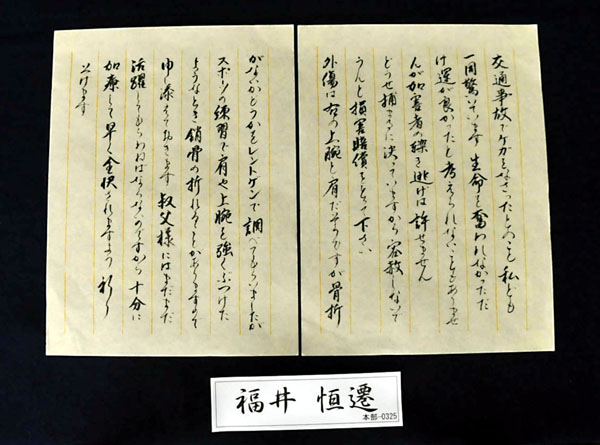 交通事故でケガをなさったとのこと私ども
一同驚いています生命を奪われなかっただ
け運が良かったと考えられないこともありませ
んが加害者の轢き逃げは許せません
どうせ捕まるに決っていますから容赦しないで
うんと損害賠償をとって下さい
外傷は右の上腕と肩だそうですが骨折
がないかどうかをレントゲンで調べてもらいましたか
スポーツの練習で肩や上腕を強くぶつけた
ようなとき鎖骨の折れることがありますので
申し添えておきます叔父様にはまだまだ
活躍してもらわねばならないのですから十分に
加療して早く全快されますよう祈り
上げます
福井 恒遷
本部-0325